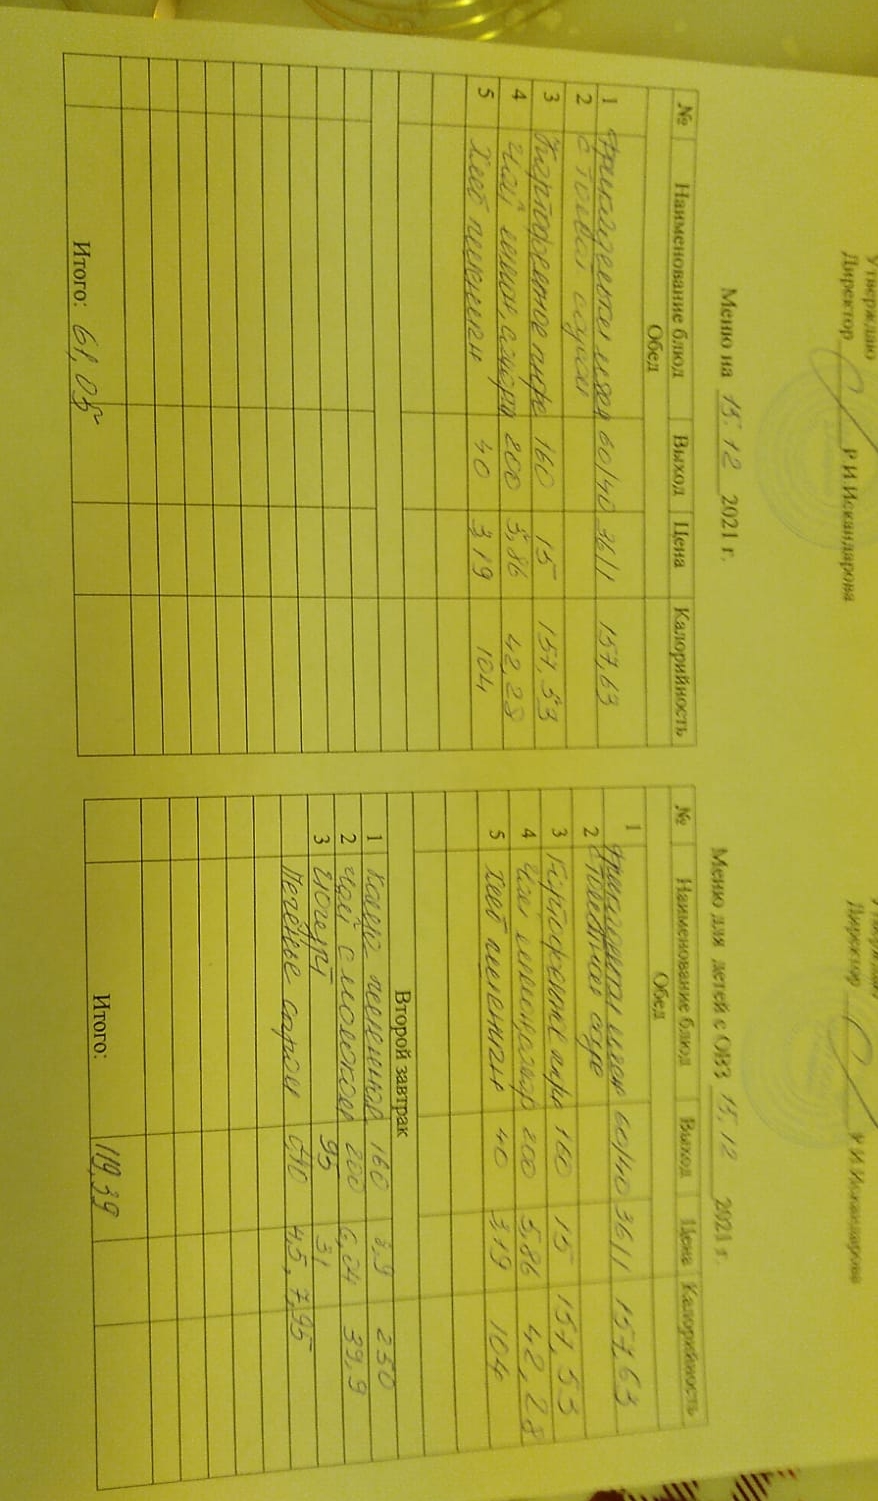 Утверждаю
Директор Р И Искандарова
Меню на 15.12 2021 г.
№ Наименование блюд Выход Цена Калорийность
Обед
1 60/40 36,11 157,63
2 с томат соусом
3 Картофельное пюре 160 15 151,53
4 Чай 200 5,86 42,28
5 Хлеб пшеничн 40 3,19 104
Итого: 61,05
Утверждаю
Директор Р И Искандарова
Меню для детей с ОВЗ 15.12 2021 г.
№ Наименование блюд Выход Цена Калорийность
Обед
1 60/40 36,11 157,63
2
3 160 15 151,53
4 Чай 200 5,86 42,28
5 Хлеб пшеничн 40 3,19 104
Второй завтрак
1 Каша пшенная 160 230
2 Чай с молоком 200 6,24 39,9
3 Йогурт 95 31
Печенье
Итого: 119,39